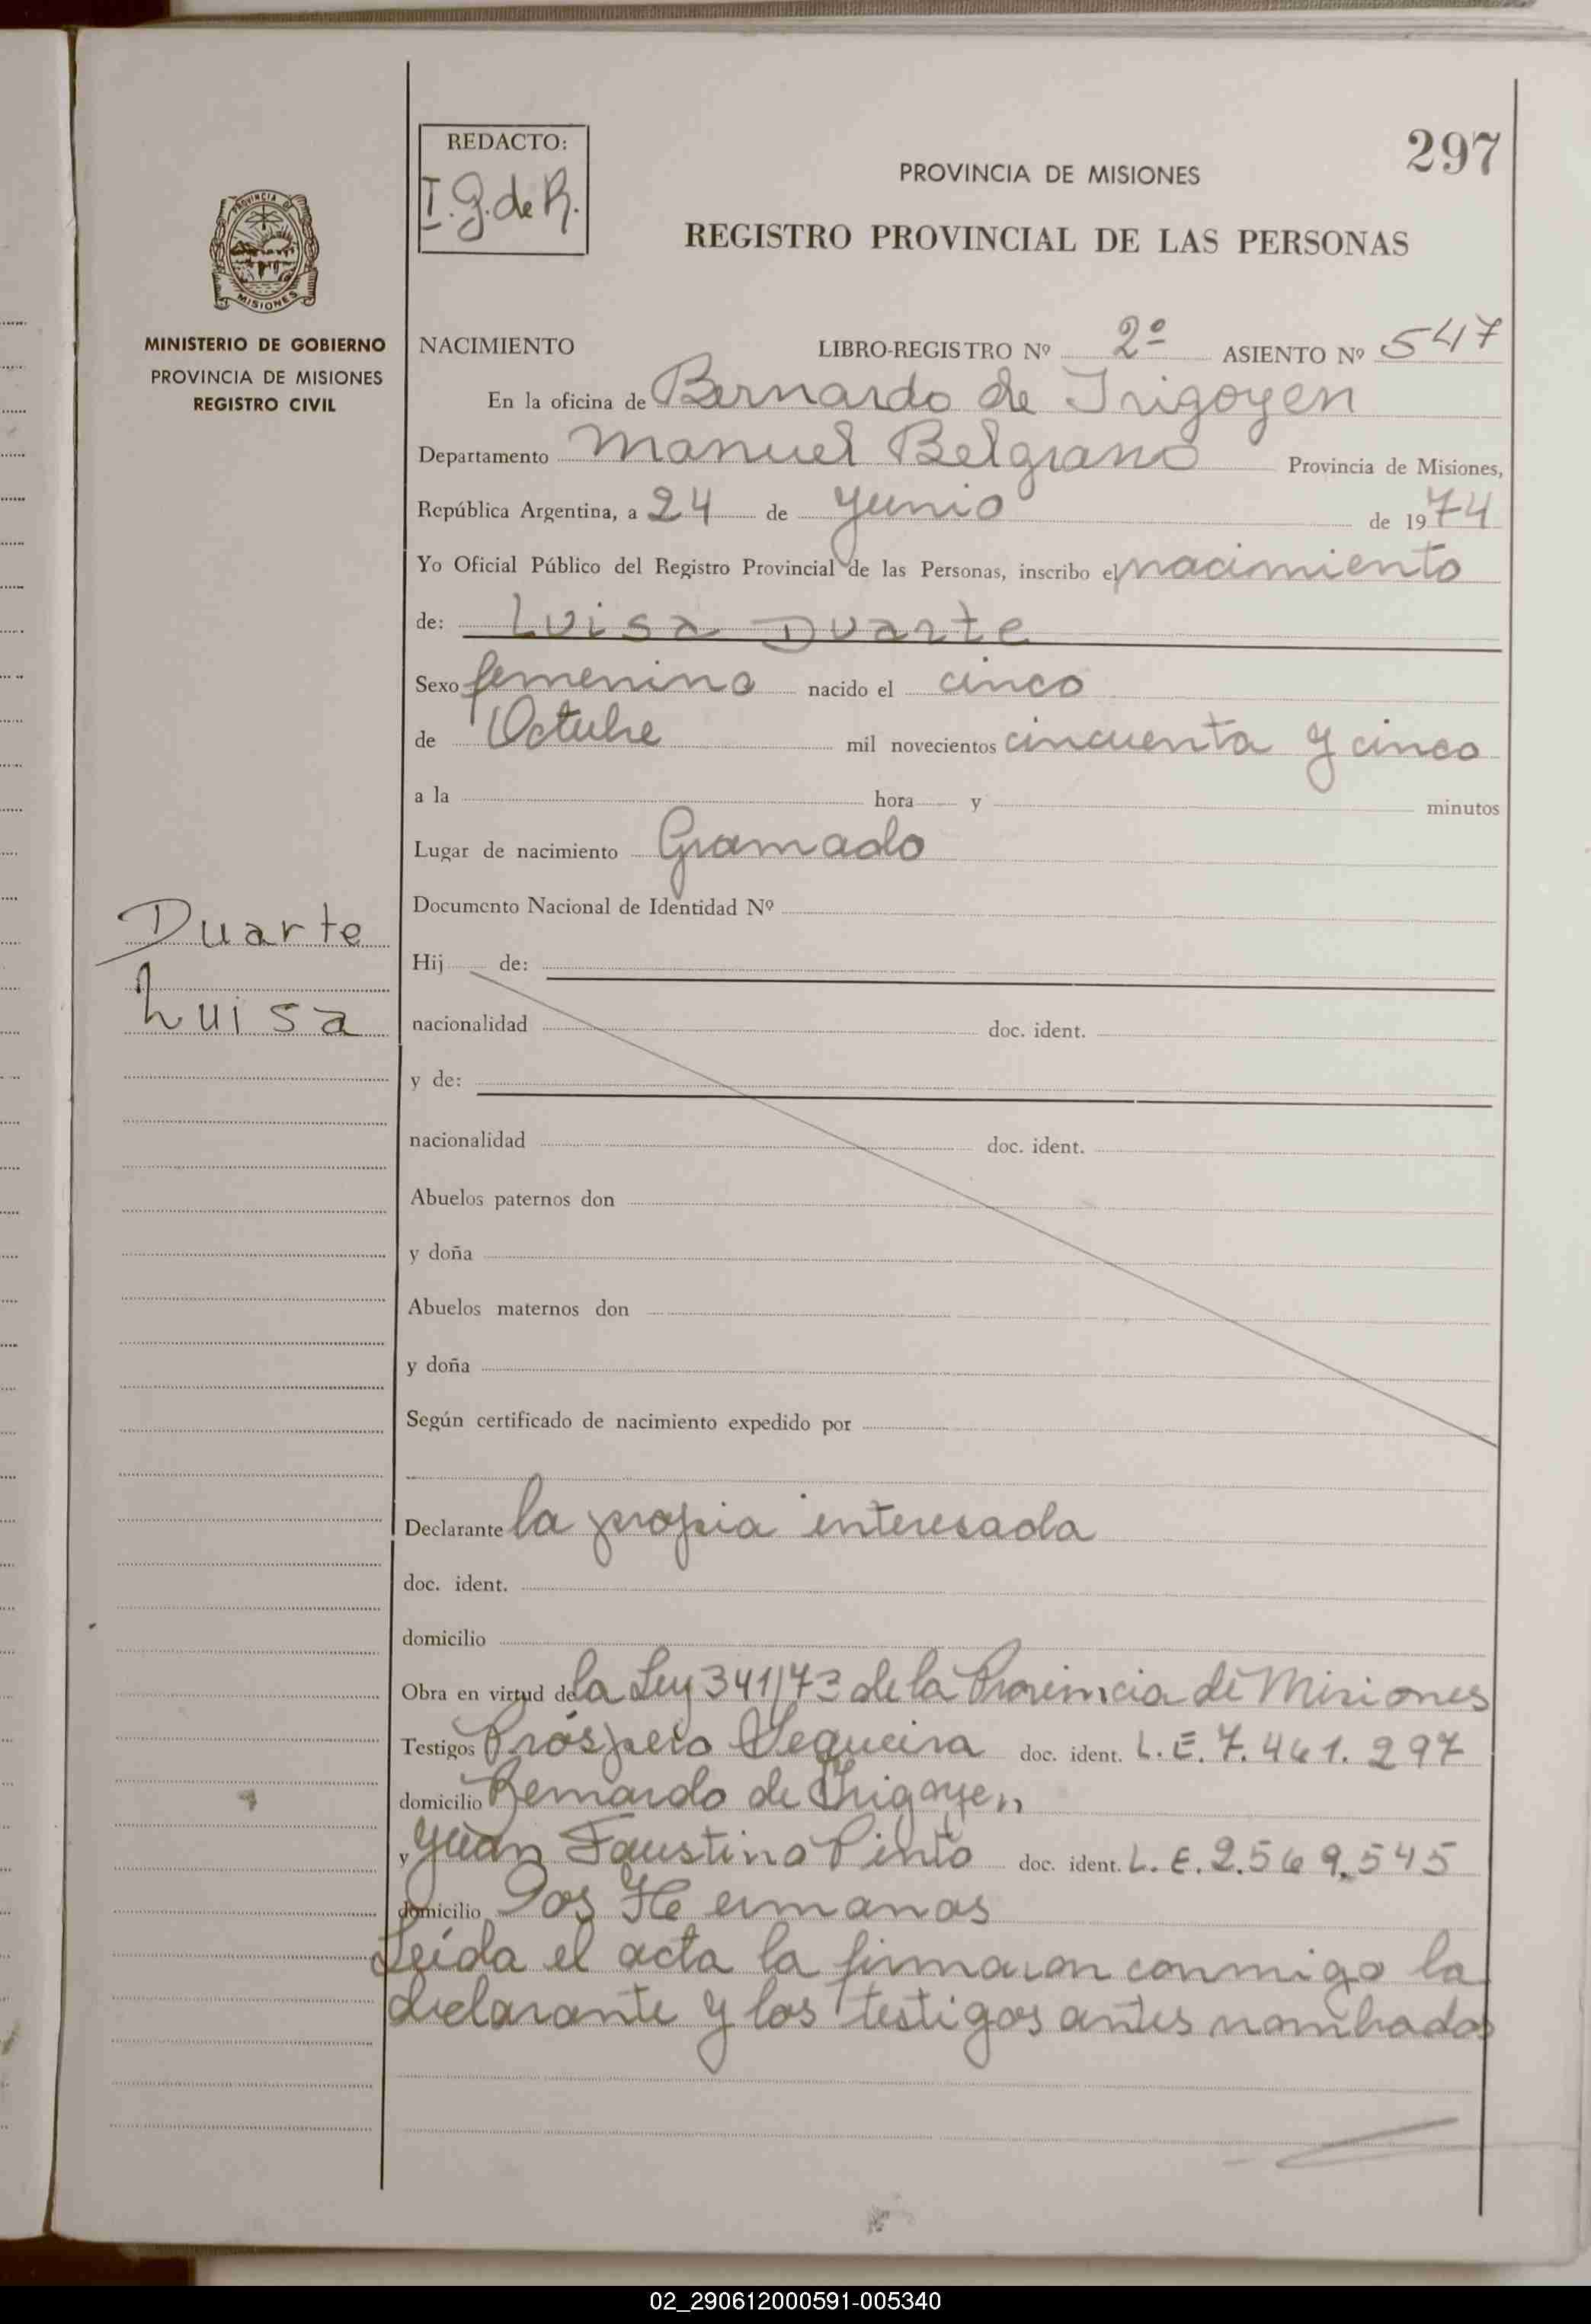 REDACTO:
I. G. de R.
297
PROVINCIA DE MISIONES
REGISTRO PROVINCIAL DE LAS PERSONAS
PROVINCIA DE
MISIONES
MINISTERIO DE GOBIERNO
PROVINCIA DE MISIONES
REGISTRO CIVIL
NACIMIENTO LIBRO-REGISTRO Nº 2º ASIENTO Nº 547
En la oficina de Bernardo de Irigoyen
Departamento Manuel Belgrano Provincia de Misiones,
República Argentina, a 24 de Junio de 1974
Yo Oficial Público del Registro Provincial de las Personas, inscribo el nacimiento
de: Luisa Duarte
Sexo femenino nacido el cinco
de Octubre mil novecientos cincuenta y cinco
a la hora y minutos
Lugar de nacimiento Gramado
Duarte
Luisa
Documento Nacional de Identidad Nº
Hij de:
nacionalidad doc. ident.
y de:
nacionalidad doc. ident.
Abuelos paternos don
y doña
Abuelos maternos don
y doña
Según certificado de nacimiento expedido por
Declarante la propia interesada
doc. ident.
domicilio
Obra en virtud de la Ley 341/73 de la Provincia de Misiones
Testigos Próspero Sequeira doc. ident. L. E. 7.461.297
domicilio Bernardo de Irigoyen
y Juan Faustino Pinto doc. ident. L. E. 2.569.545
domicilio Dos Hermanas
Leída el acta la firmaron conmigo la
declarante y los testigos antes nombrados
02_290612000591-005340